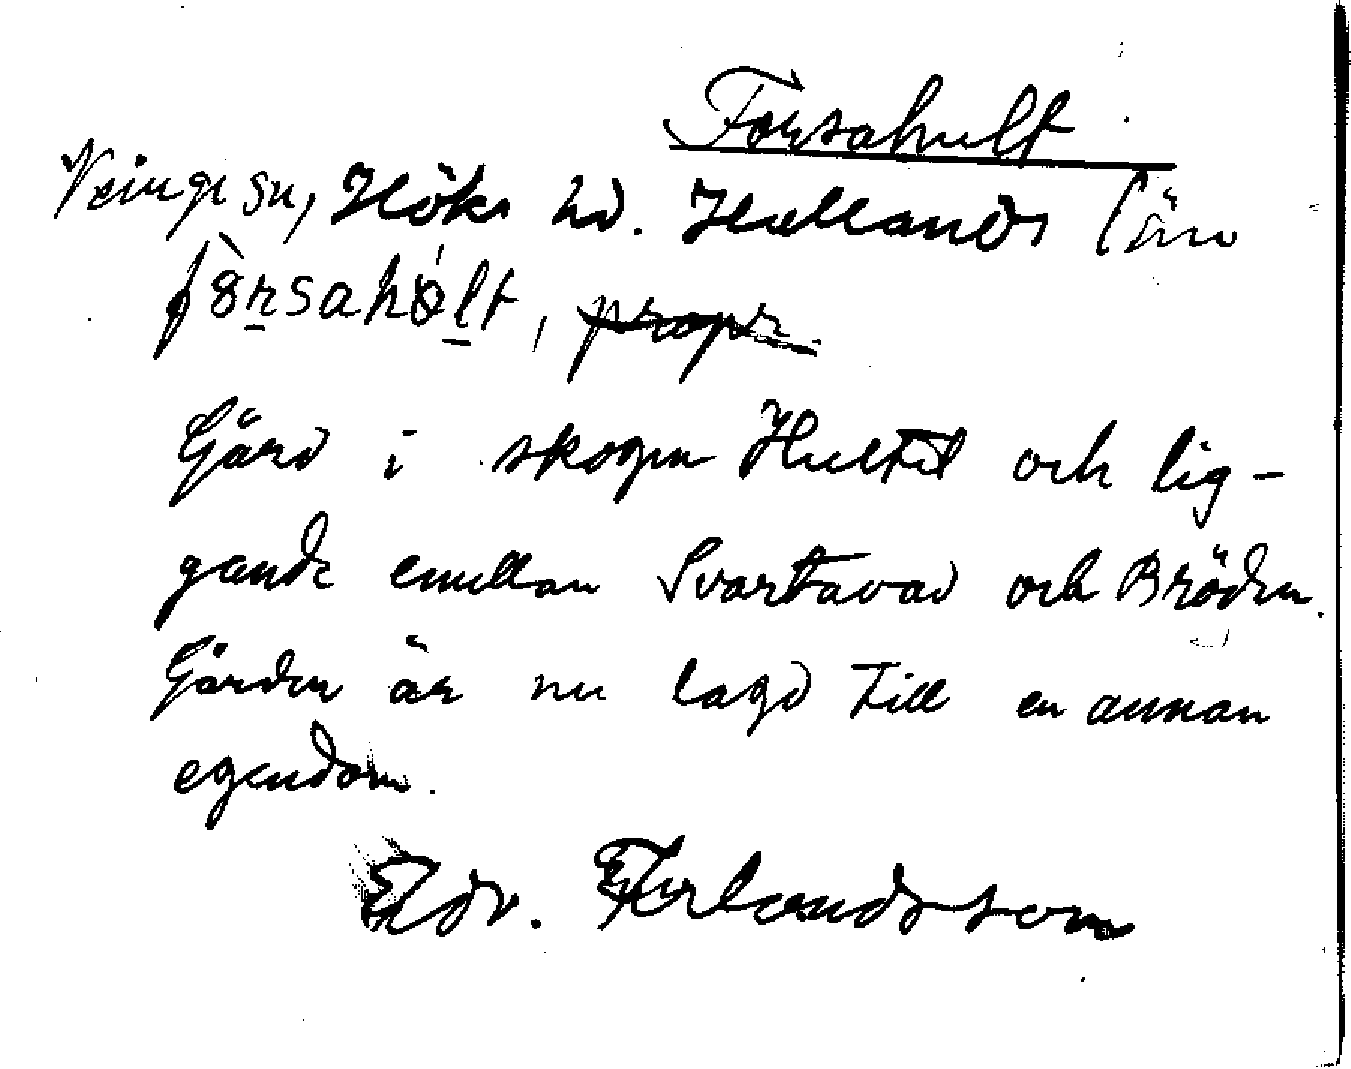 Forsahult
Veinge sn, Höks hd. Hallands län
fòrsahúlt, propr
Gård i skogen Hultet och lig-
gande emellan Svartavad och Bröden.
Gården är nu lagd till en annan
egendom.
Edv. Erlandsson